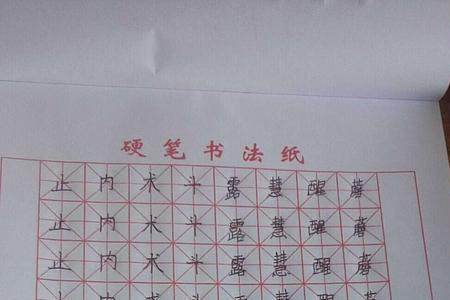 硬笔书法纸
止内术斗露慧醒蘑
止内术斗露慧醒蘑
止内术斗露慧醒蘑